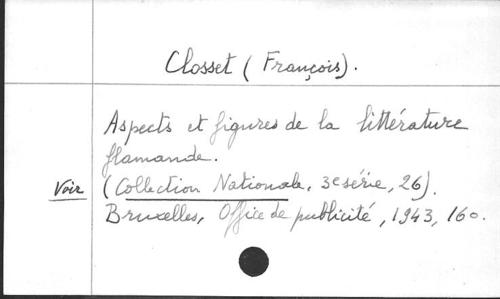 Closset (François).
Aspects et figures de la littérature
flamande.
Voir (Collection Nationale, 3e série, 26).
Bruxelles, Office de publicité, 1943, 160.